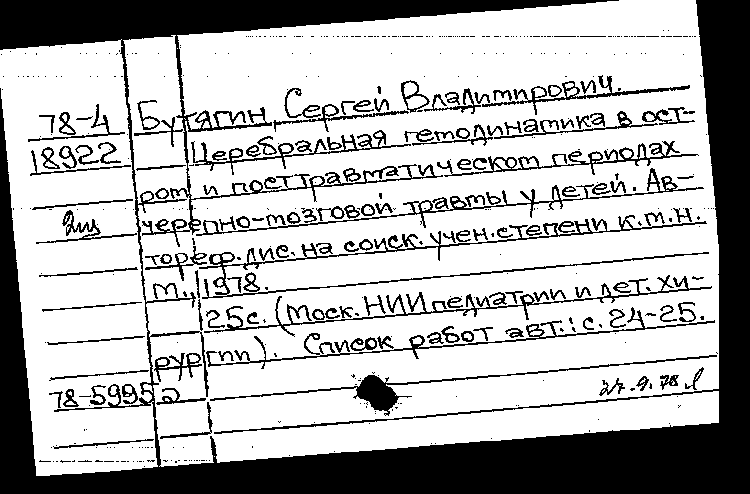 78-4 Бутягин, Сергей Владимирович.
18922 Церебральная гемодинамика в ост-
ром и посттравматическом периодах
2 из черепно-мозговой травмы у детей. Ав-
тореф. дис. на соиск. учен. степени к.м.н.
М., 1978.
25с. (Моск. НИИ педиатрии и дет. хи-
рургии). Список работ авт.: с. 24-25.
78-5995а
27.9.78